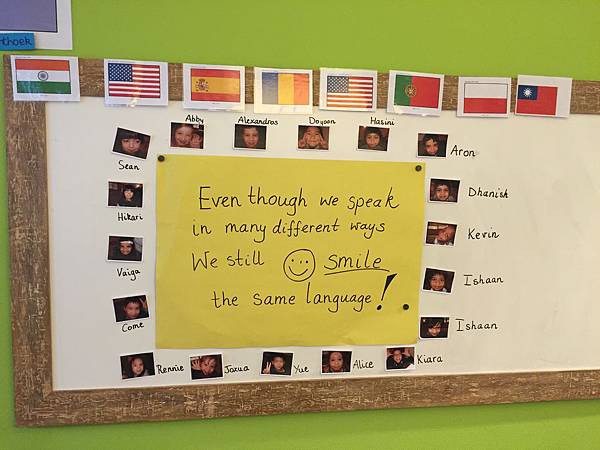 thoek
Abby
Alexandros
Doyoon
Hasini
Aron
Sean
Dhanish
Hikari
Kevin
Vaiga
Ishaan
Come
Ishaan
Rennie
Jazua
Yue
Alice
Kiara
Even though we speak
in many different ways
We still smile
the same language!